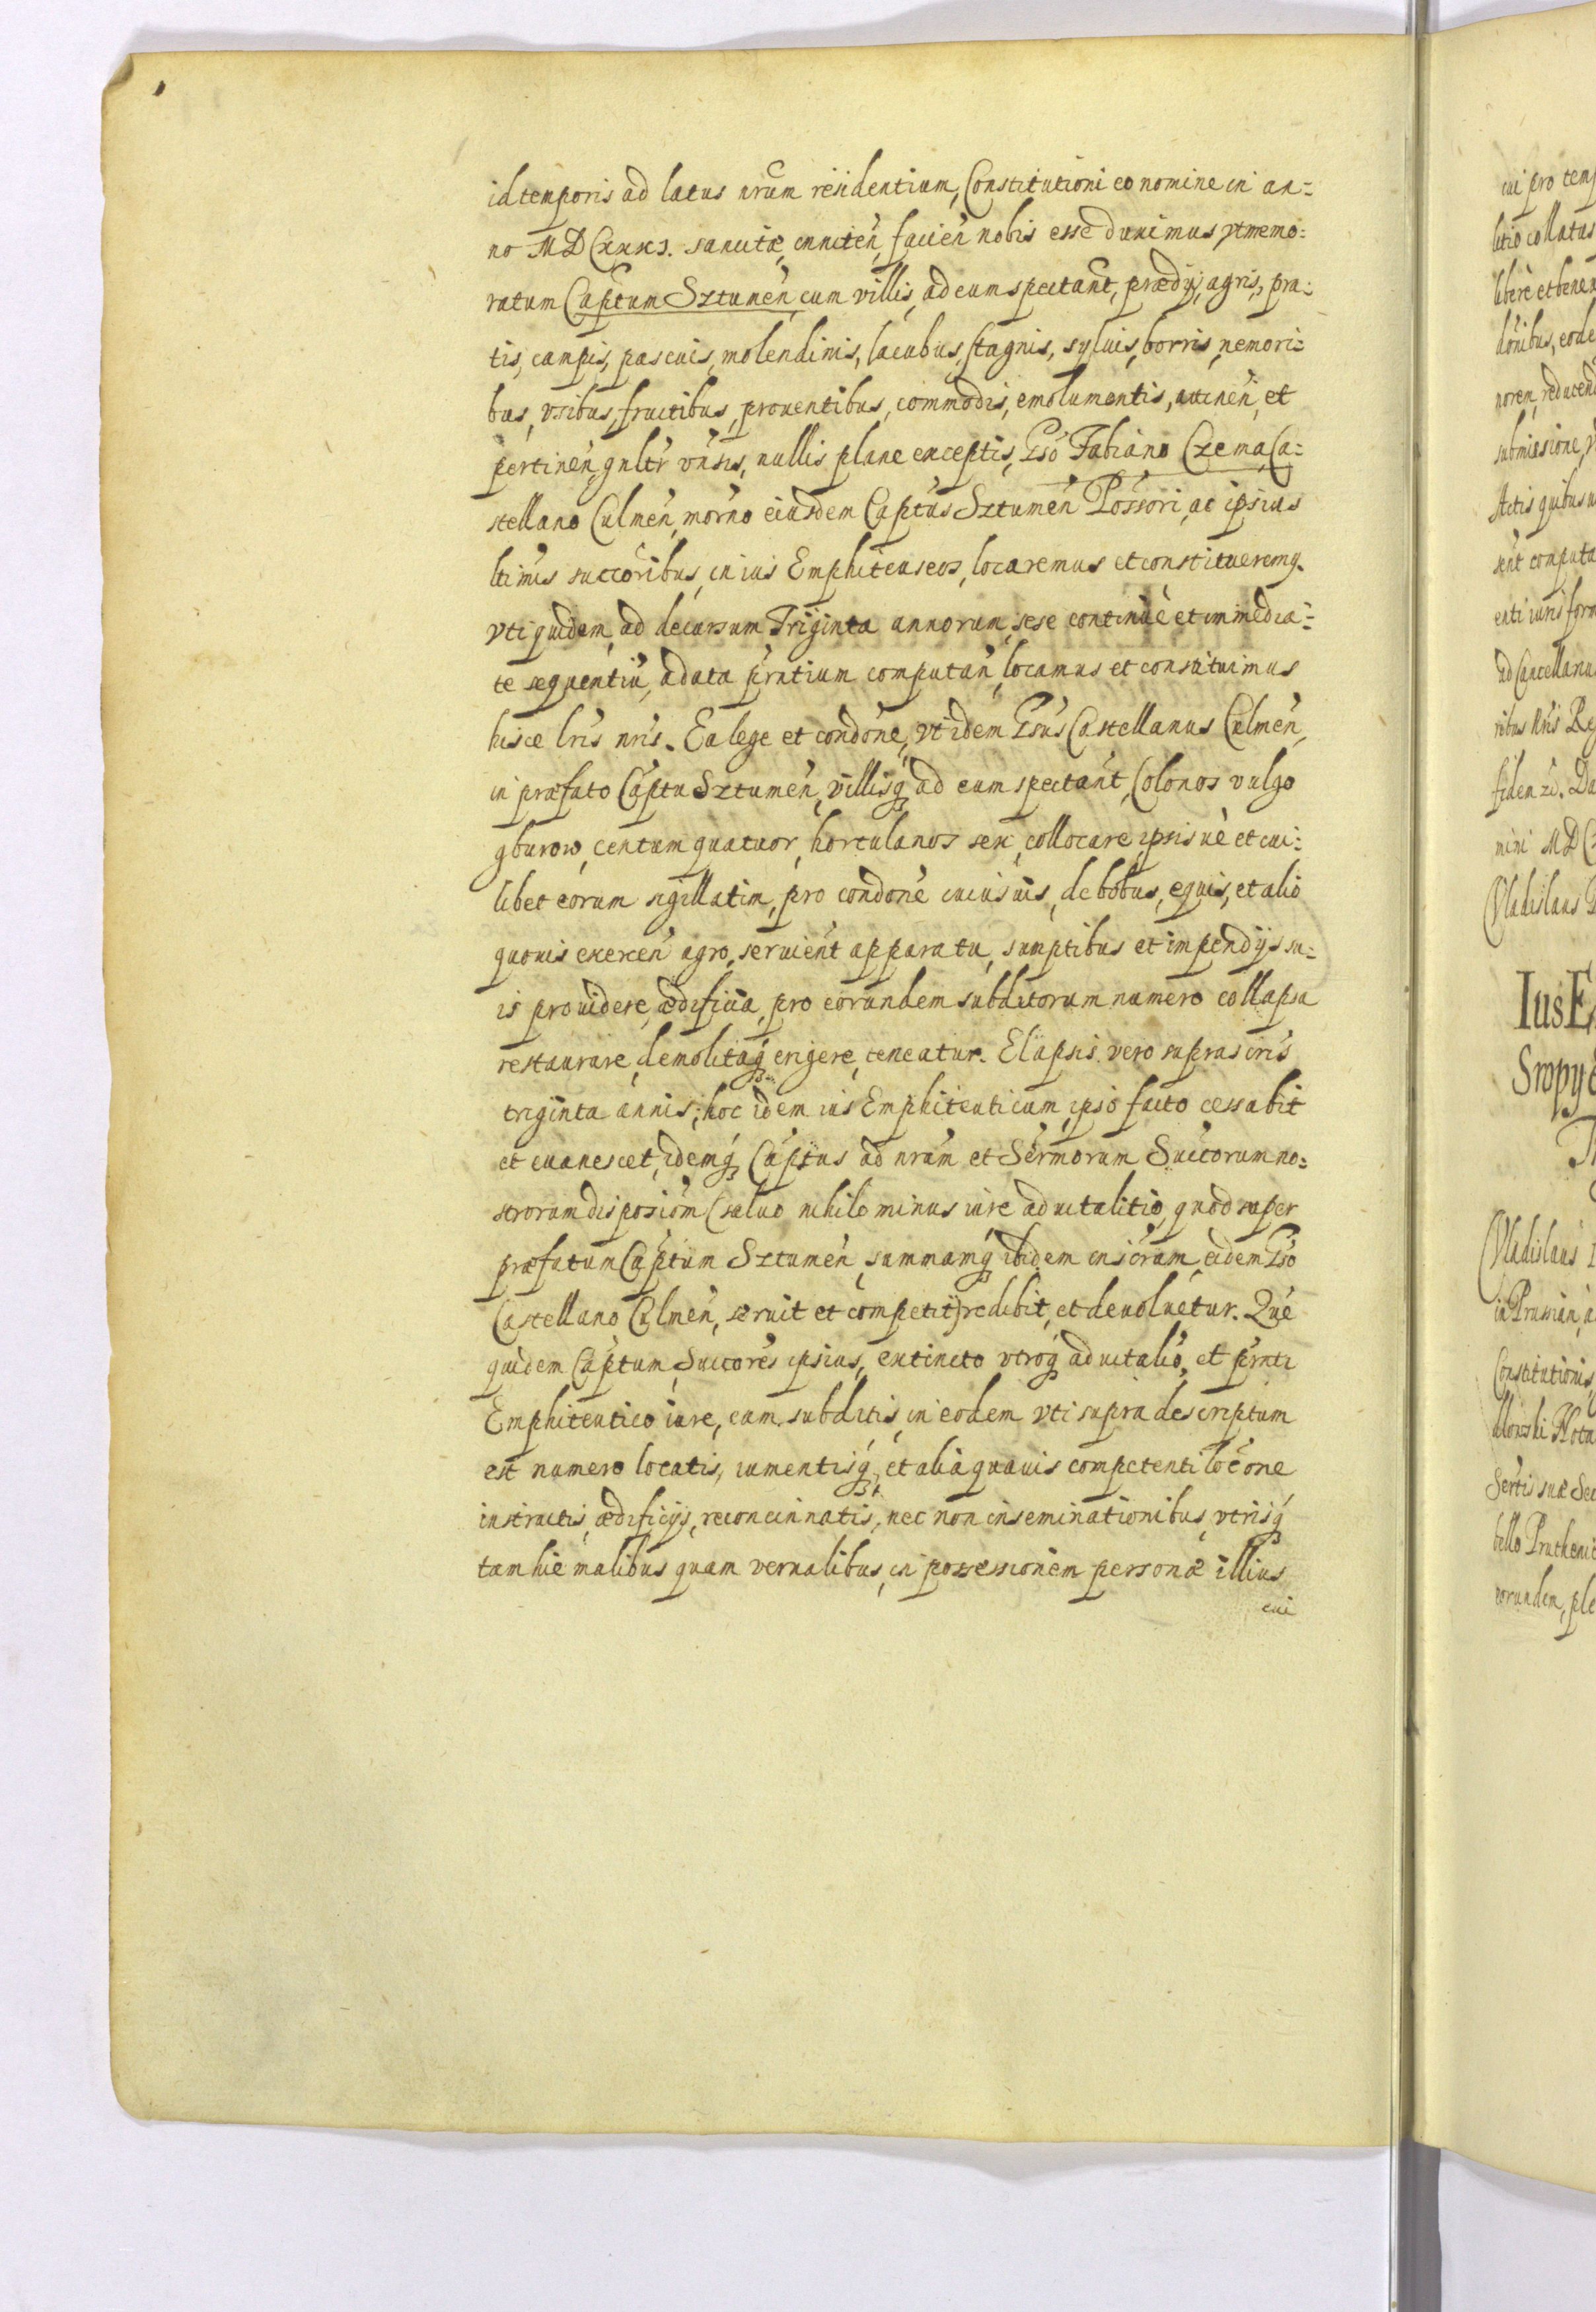 id temporis ad latus nrum residentium, Constitutioni eo nomine in an:
no MDCxxxj. sancitæ, inniten, facien nobis esse duximus, vt memo:
ratum Captum Sztumen, cum villis, ad eum spectant, prædijs, agris, pra:
tis, campis, pascuis, molendinis, lacubus, stagnis, syluis, borris, nemori:
bus, vsibus, fructibus, prouentibus, commodis, emolumentis, attinen, et
pertinen, gnltr vnsis, nullis plane exceptis, Gso Fabiano Czema, Ca:
stellano Culmen, morno eiusdem Captus Sztumen Possori, ac ipsius
ltimis succoribus, in ius Emphiteuseos, locaremus et constitueremq.
vti quidem, ad decursum Triginta annorum, sese continuè et immedia:
te sequentiu, a data pntium computan, locamus et constituimus
hisce lris nris. Ea lege et condone, vt idem Gsus Castellanus Culmen,
in præfato Captu Sztumen, villisq ad eum spectant, Colonos vulgo
gburow, centum quatuor, hortulanos sex, collocare, ipsis uè et cui:
libet eorum sigillatim, pro condone cuiusuis, de bobus, equis, et alio
quouis exercen agro, seruient apparatu, sumptibus et impendijs su:
is prouidere, ædificia, pro eorundem subditorum numero collapsa
restaurare, demolitaq erigere, teneatur. Elapsis vero suprascris
triginta annis, hoc idem ius Emphiteuticum, ipso facto cessabit
et euanescet, idemq Captus ad nram et Sermorum Succorum no:
strorum disposiom (saluo nihilo minus iure aduitalitio, quod super
præfatum Captum Sztumen, summamq ibidem inscram, eidem Gso
Castellano Culmen, seruit et competit) redibit, et deuoluetur. Que
quidem Captum, Succores ipsius, extincto vtroq aduitalio, et pnti
Emphiteutico iure, cum subditis, in eodem vti supra descriptum
est numero locatis, iumentisq, et alia quauis competenti locone
instructis, ædificijs, reconcinnatis, nec non inseminationibus, vtrisq
tam hie malibus quam vernalibus, in possessionem personæ illius
cui